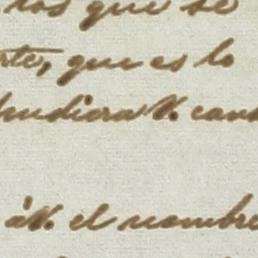 los que se
rte, que es lo
pudiera V. can
á V. el nombre